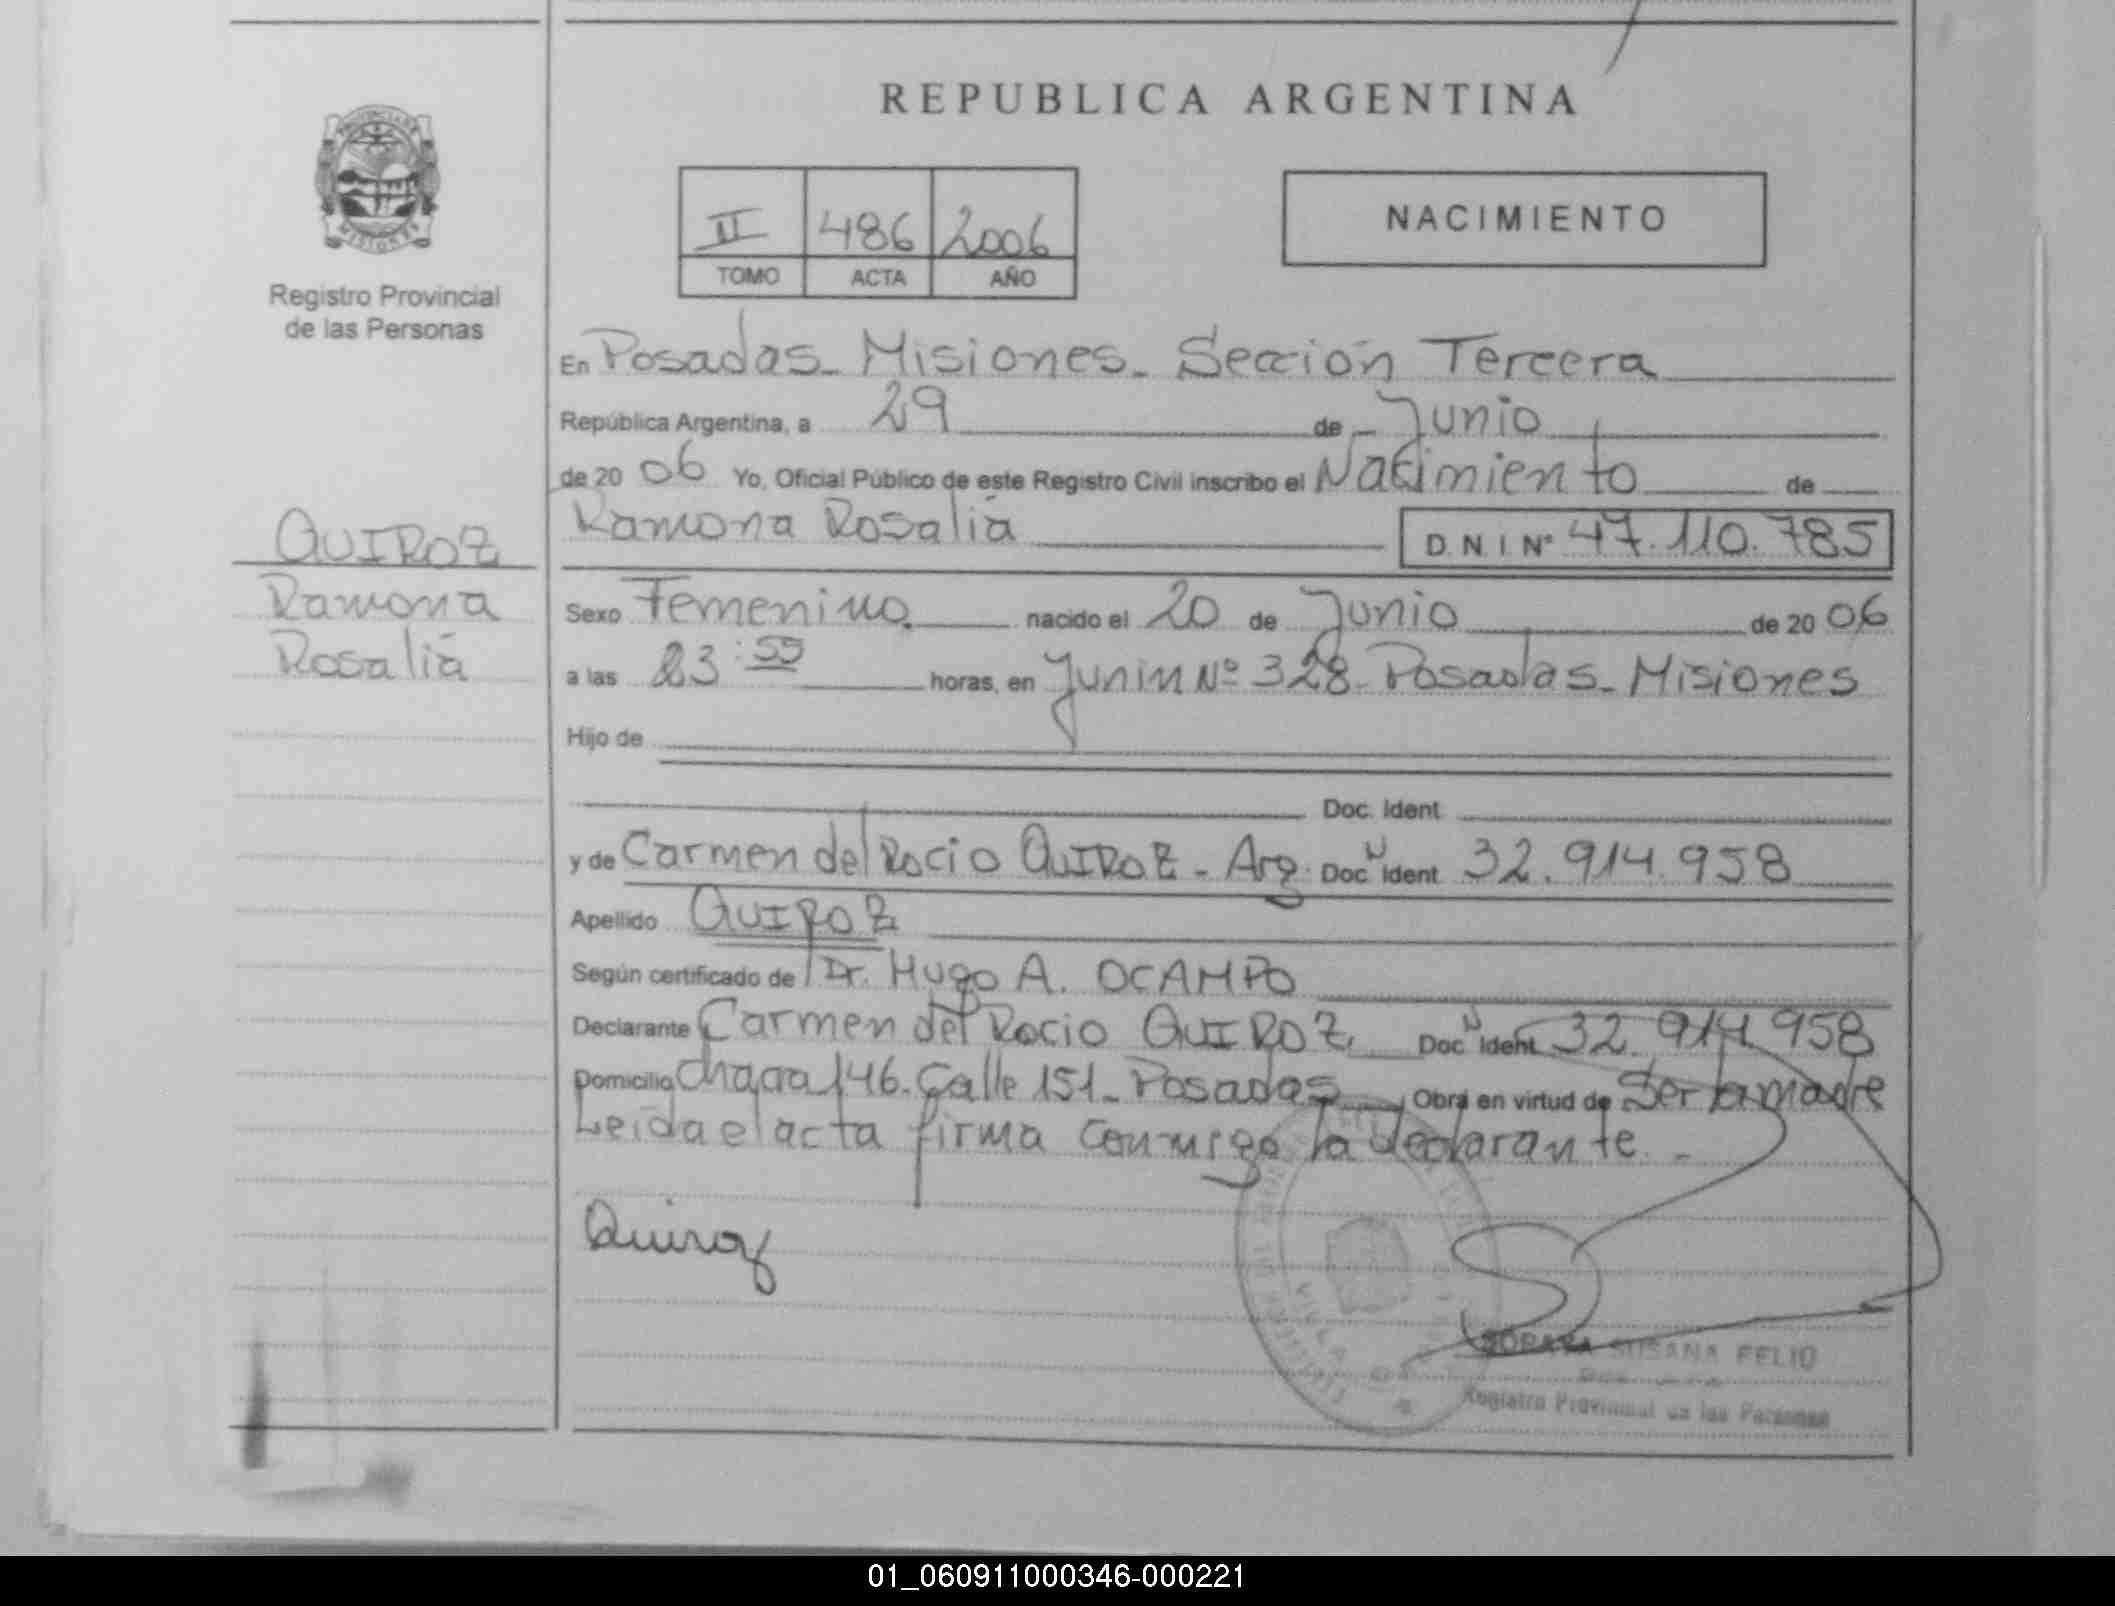 REPUBLICA ARGENTINA
PROVINCIA DE MISIONES
Registro Provincial
de las Personas
II 486 2006
TOMO ACTA AÑO
NACIMIENTO
En Posadas - Misiones - Sección Tercera
República Argentina, a 29 de Junio
de 20 06 Yo, Oficial Público de este Registro Civil inscribo el Nacimiento de
Ramona Rosalia D.N.I Nº 47.110.785
QUIROZ
Ramona
Rosalia
Sexo Femenino. nacido el 20 de Junio de 20 06
a las 23:55 horas, en Junin Nº 328 - Posadas - Misiones
Hijo de
Doc. Ident
y de Carmen del Rocio QUIROZ - Arg. Doc N Ident 32.914.958
Apellido QUIROZ
Según certificado de Dr. Hugo A. OCAMPO
Declarante Carmen del Rocio QUIROZ Doc N Ident 32.914.958
Domicilio Chacra 146 - Calle 151 - Posadas Obra en virtud de Ser la madre
Leida el acta firma conmigo la declarante. -
Quiroz
SUSANA FELIO
Registro Provincial de las Personas
01_060911000346-000221